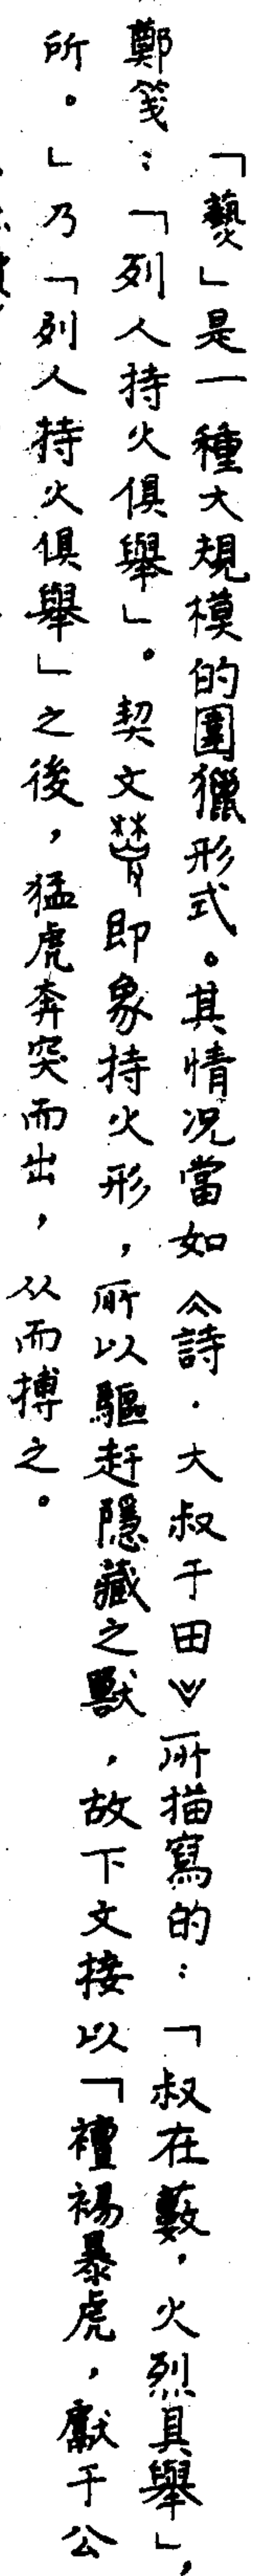 「爇」是一種大規模的圍獵形式。其情况當如《詩·大叔于田》所描寫的：「叔在藪，火烈具舉」，
鄭箋：「列人持火俱舉」。契文即象持火形，所以驅赶隱藏之獸，故下文接以「襢裼暴虎，獻于公
所。」乃「列人持火俱舉」之後，猛虎奔突而出，从而搏之。